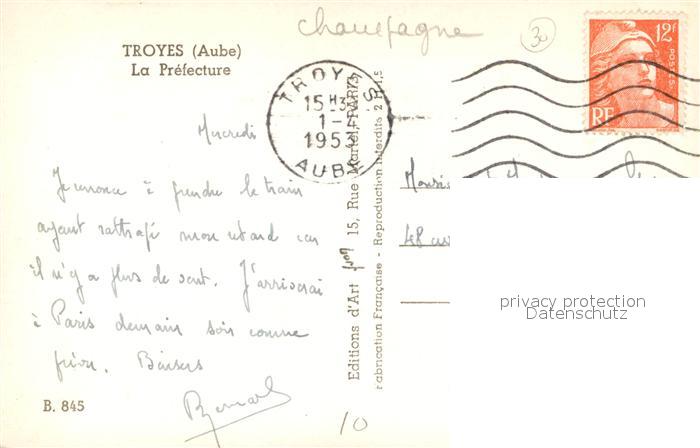 Champagne
30
TROYES (Aube)
La Préfecture
TROYES
15H3
1-
195
AUBE
12F
POSTES
RF
Mercredi
Je renonce à prendre le train
ayant rattrapé mon retard car
il n'y a plus de vent. J'arriverai
à Paris demain soir comme
prévu. Baisers
Bernard
B. 845
Editions d'Art yvon 15, Rue Martel, PARIS
Fabrication Française - Reproduction interdite -
Monsie
48
privacy protection
Datenschutz
10